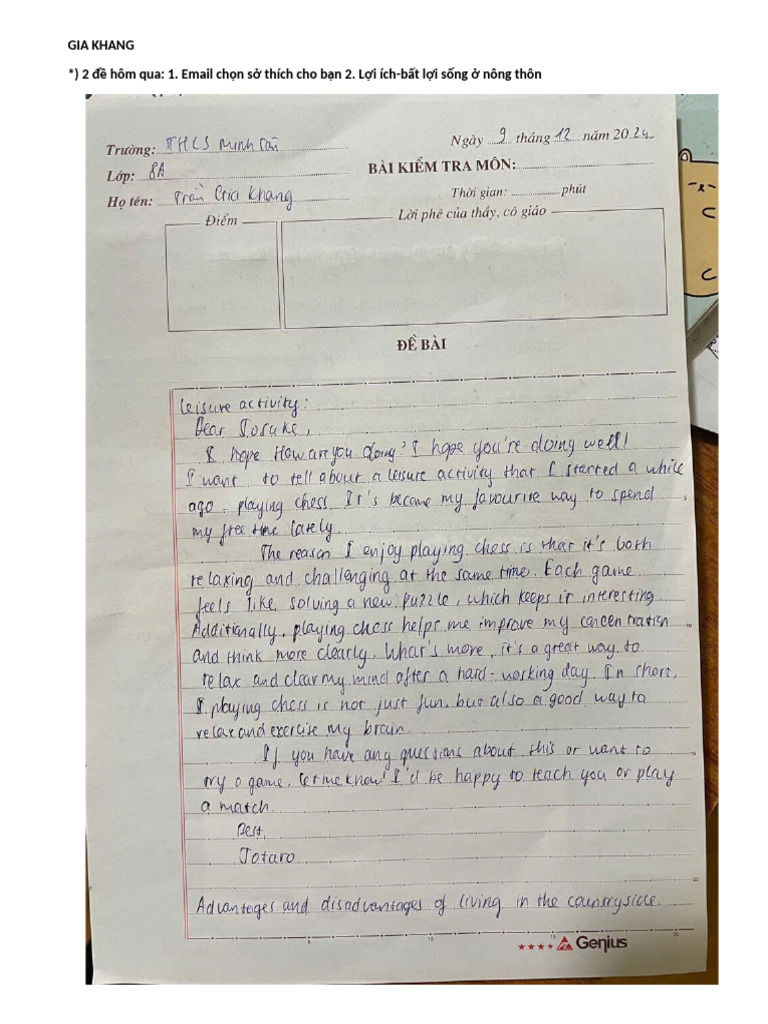 GIA KHANG
*) 2 đề hôm qua: 1. Email chọn sở thích cho bạn 2. Lợi ích-bất lợi sống ở nông thôn
Trường: THCS Minh Tân
Ngày 9 tháng 12 năm 2024
Lớp: 8A
BÀI KIỂM TRA MÔN:
Họ tên: Trần Gia Khang
Thời gian: phút
Điểm
Lời phê của thầy, cô giáo
ĐỀ BÀI
Leisure activity:
Dear Josuke,
I hope How are you doing? I hope you're doing well!
I want to tell about a leisure activity that I started a while
ago - playing chess. It's become my favourite way to spend
my free time lately.
The reason I enjoy playing chess is that it's both
relaxing and challenging at the same time. Each game
feels like solving a new puzzle, which keeps it interesting
Additionally, playing chess helps me improve my concentration
and think more clearly. What's more, it's a great way to
relax and clear my mind after a hard-working day. In short,
I playing chess is not just fun, but also a good way to
relax and exercise my brain.
If you have any questions about this or want to
try a game, let me know! I'd be happy to teach you or play
a match.
Best,
Jotaro
Advanteges and disadvantages of living in the countryside.
5
10
15
20
5
10
15
20
Genius